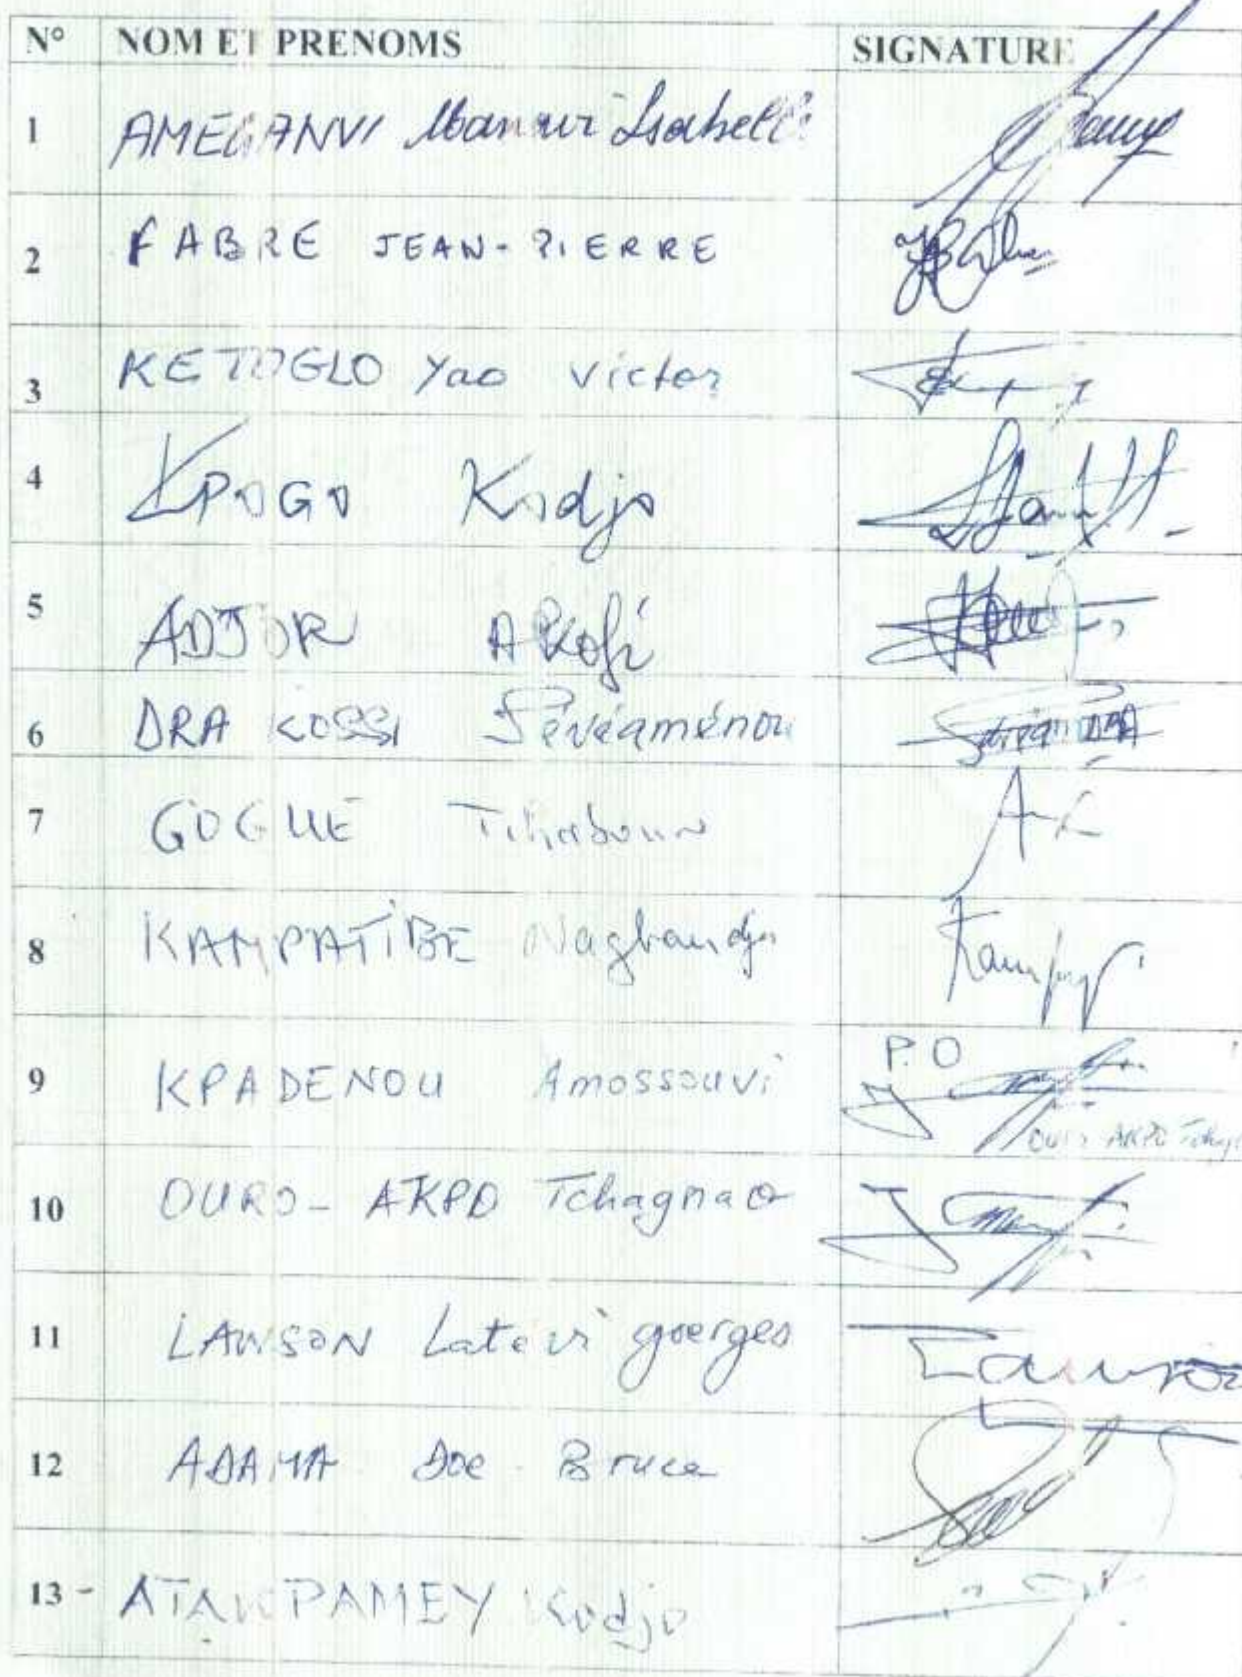 N° NOM ET PRENOMS SIGNATURE
1 AMEGANVI Manavi Isabelle
2 FABRE JEAN-PIERRE
3 KETOGLO Yao Victor
4 KPOGO Kodjo
5 ADJOR AKofi
6 DRA KOSSI Sévéaménou
7 GOGUE Tchaboure
8 KAMPATIBE Nagbandja
9 KPADENOU Amossouvi P.O
OURO AKPO Tchag
10 OURO-AKPO Tchagnao
11 LAWSON Latevi goerges Lawson
12 ADAMA Doe Bruce
13 - ATAKPAMEY Kodjo